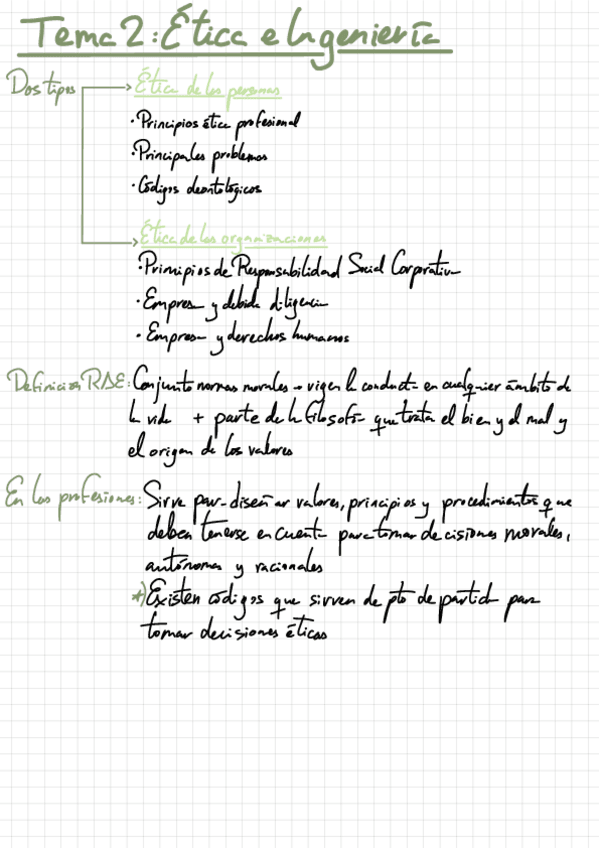 Tema 2: Ética e Ingeniería
Dos tipos
Ética de las personas
• Principios ética profesional
• Principales problemas
• Códigos deontológicos
Ética de las organizaciones
• Principios de Responsabilidad Social Corporativa
• Empresa y debida diligencia
• Empresa y derechos humanos
Definición RAE: Conjunto normas morales → rigen la conducta en cualquier ámbito de
la vida + parte de la filosofía que trata el bien y el mal y
el origen de los valores
En las profesiones: Sirve para diseñar valores, principios y procedimientos que
deben tenerse en cuenta para tomar decisiones morales,
autónomas y racionales
*) Existen códigos que sirven de pto de partida para
tomar decisiones éticas